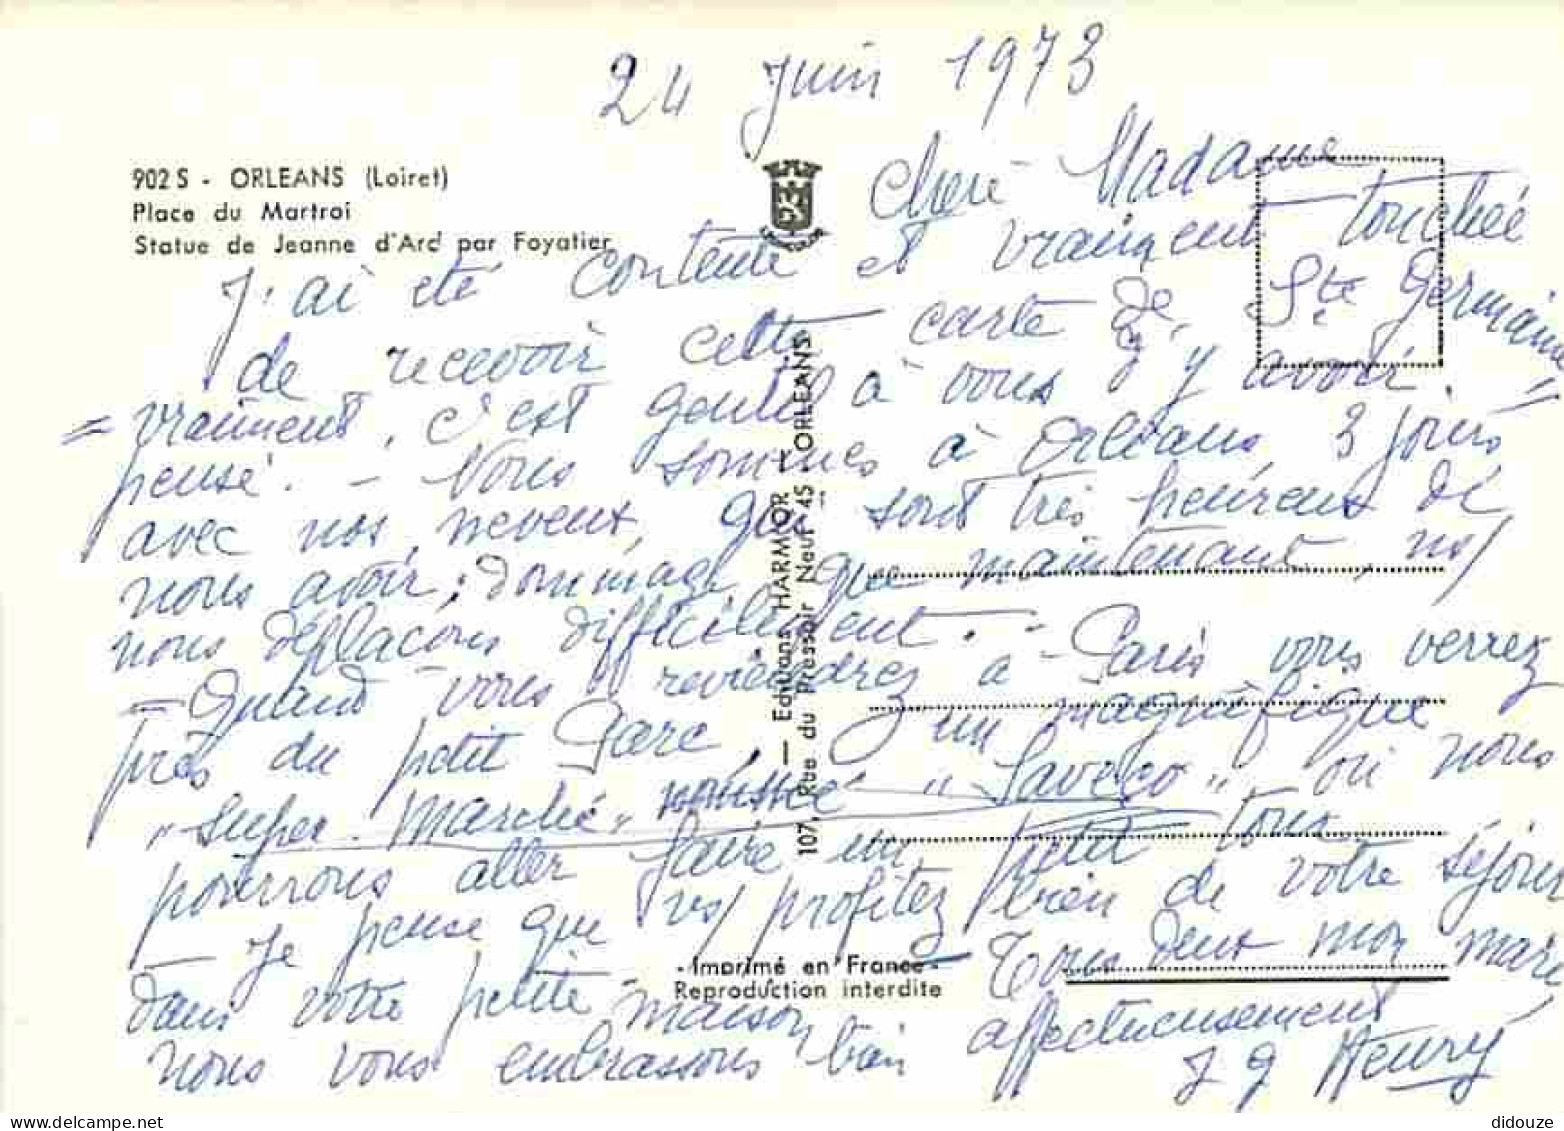 24 Juin 1973
902 S - ORLEANS (Loiret)
Place du Martroi
Statue de Jeanne d'Arc par Foyatier
Chère Madame
J'ai été contente et vraiment touchée
de recevoir cette carte de Ste Germaine
= vraiment, c'est gentil à vous d'y avoir =
pensé. - Nous sommes à Orléans 3 jours
avec nos neveux, qui sont très heureux de
nous avoir; dommage que maintenant, ns/
nous déplaçons difficilement. -
- Quand vous reviendrez à Paris vous verrez
près du petit Parc, un magnifique
"Super-Marché" nommé "Saveco" où nous
pourrons aller faire un petit tour
- Je pense que vs/ profitez bien de votre séjour
dans votre petite maison Tous deux mon mari
nous vous embrassons bien affectueusement
J G Henry
107, Rue du Pressoir Neuf - 45 - ORLEANS
— Editions HARMOR —
- Imprimé en France -
Reproduction interdite
didouze